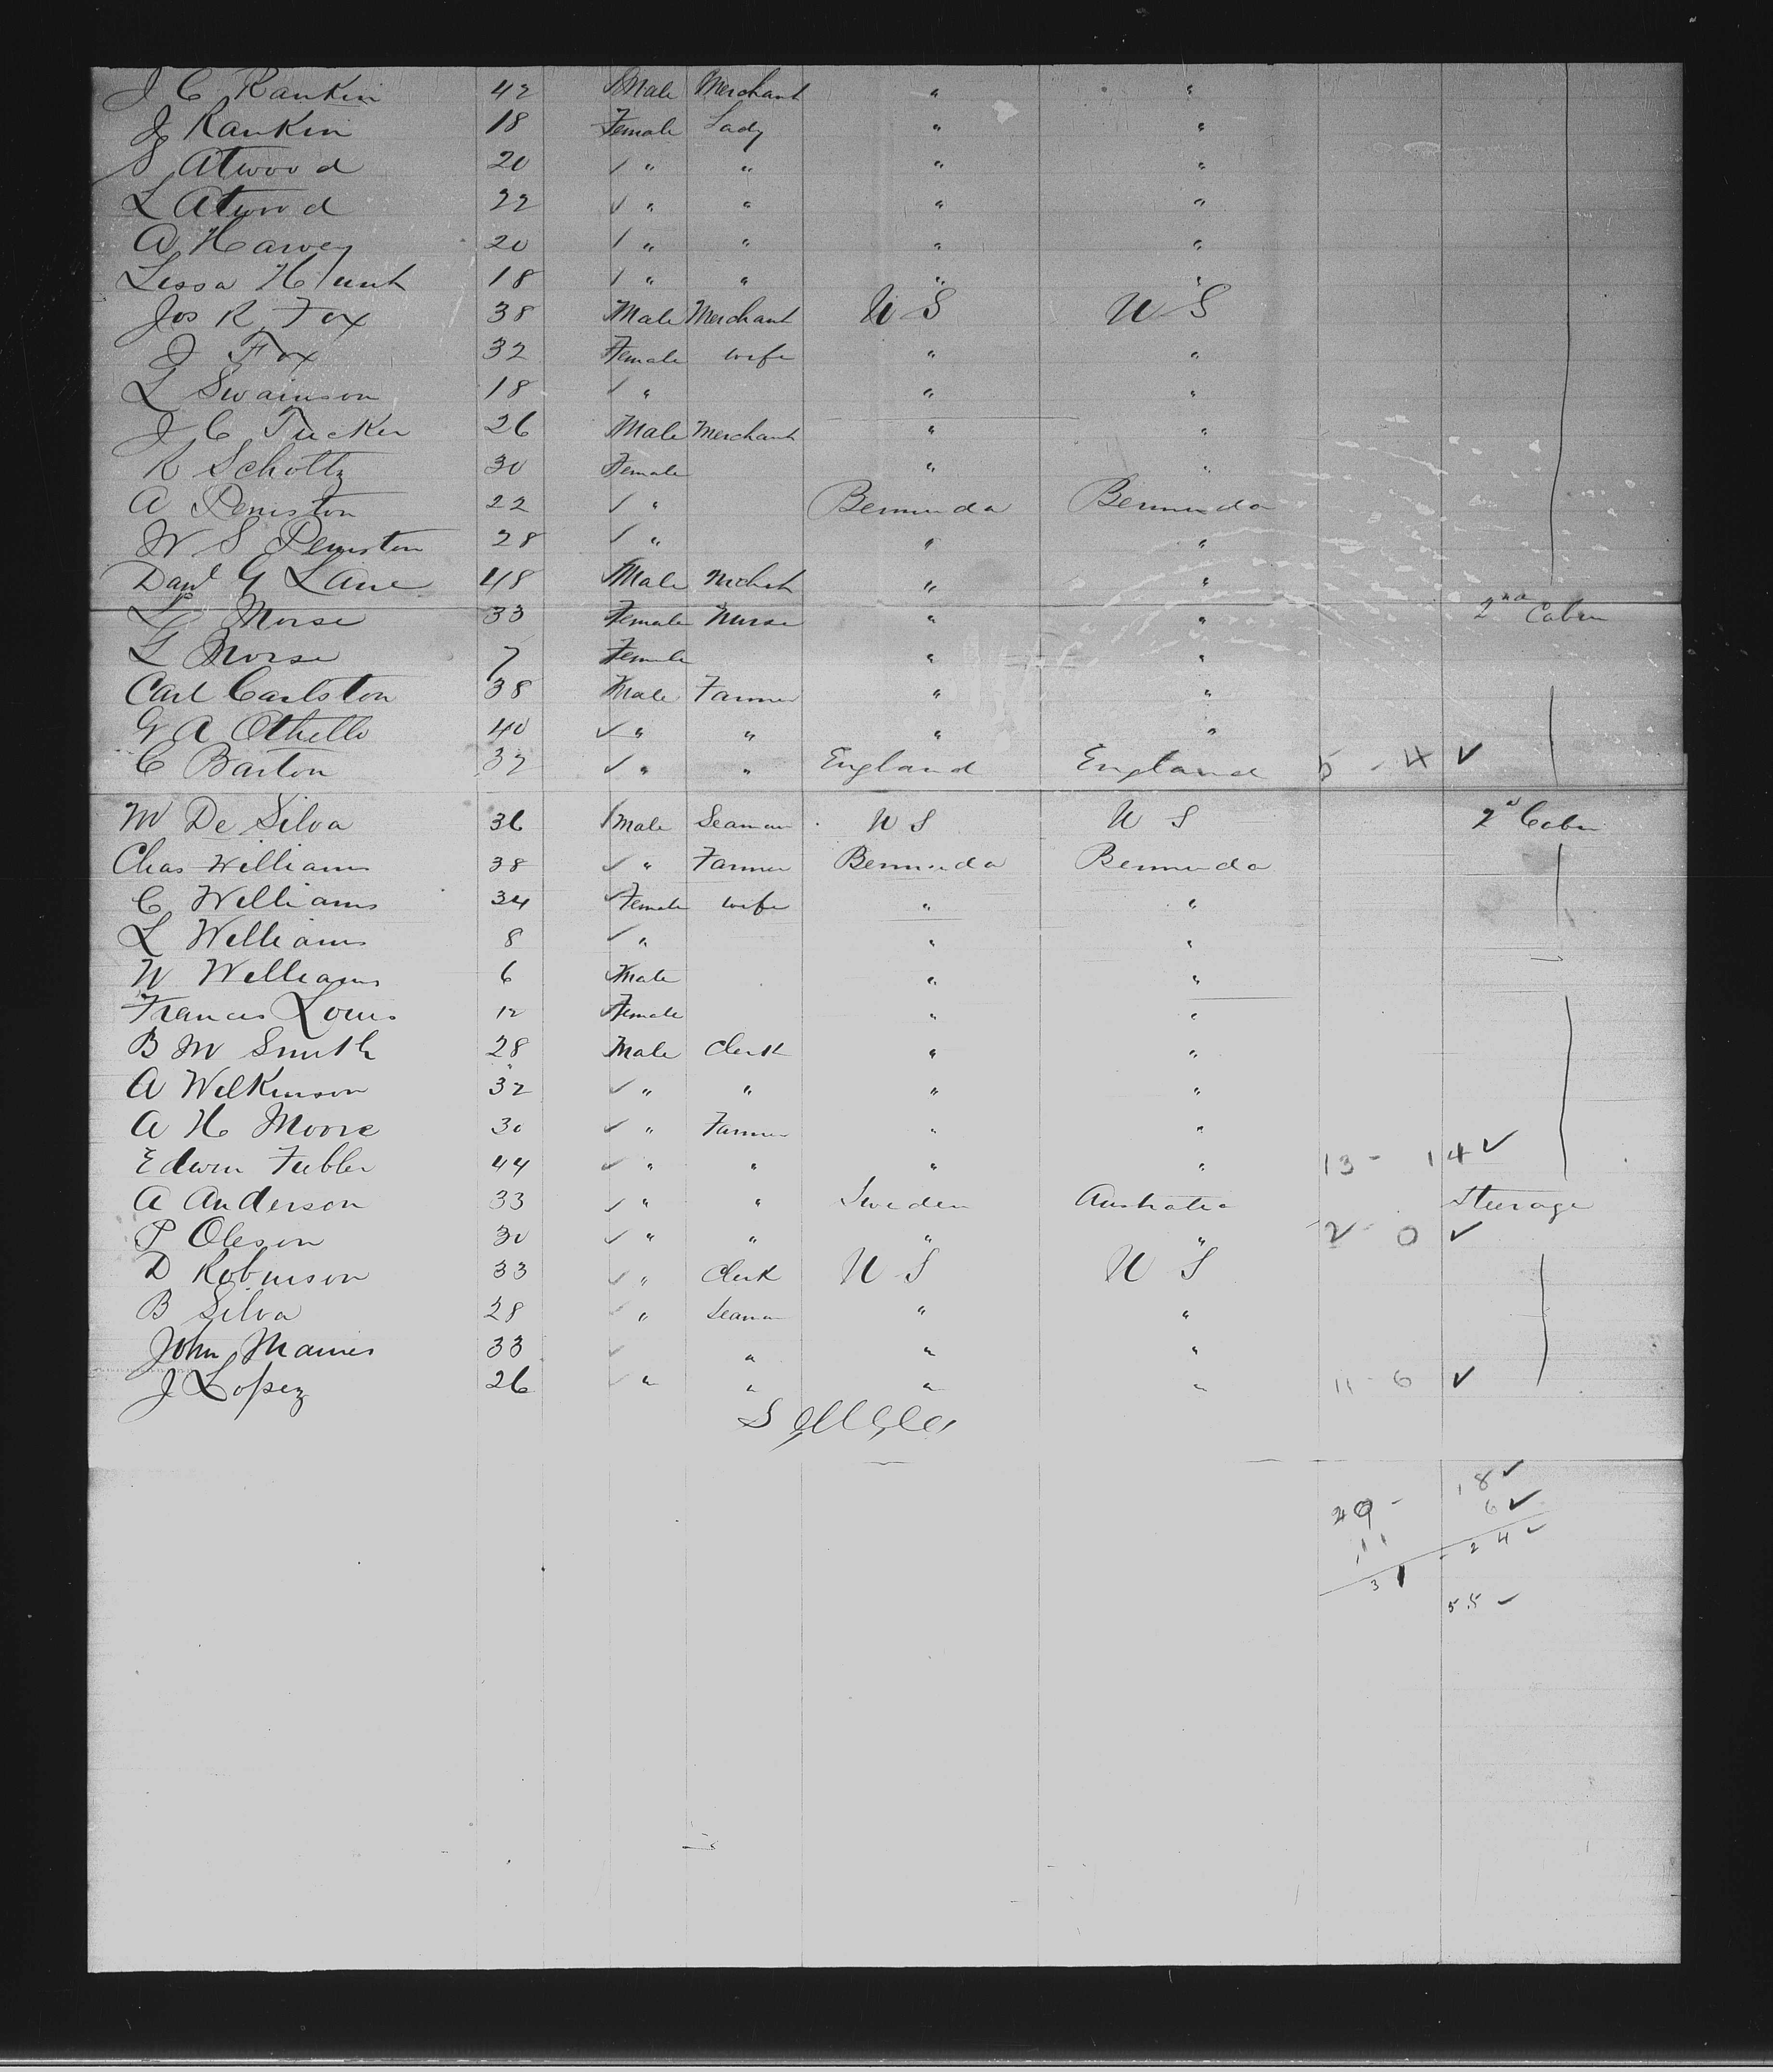 J C Rankin 42 Male Merchant " "
J Rankin 18 Female Lady " "
S Atwood 20 " " " "
L Atwood 22 " " " "
A Harvey 20 " " " "
Lessa Hunt 18 " " " "
Jos R Fox 38 Male Merchant U S U S
J Fox 32 Female wife " "
L Swainson 18 " " "
J C Tucker 26 Male Merchant " "
R Scholtz 30 Female " "
A Peniston 22 " Bermuda Bermuda
W S Peniston 28 " " "
Danl G Lane 48 Male " "
L Morse 33 Female Nurse " " 2nd Cabin
L Morse 7 Female " "
Carl Carlston 38 Male Farmer " "
G A Othello 40 " " " "
C Barton 32 " " England England 5 - 4 ✓
M De Silva 36 Male Seaman U S U S 2d Cabn
Chas Williams 38 " Farmer Bermuda Bermuda
C Williams 34 Female wife " "
L Williams 8 " " "
W Williams 6 Male " "
Frances Louis 12 Female " "
B M Smith 28 Male Clerk " "
A Wilkinson 32 " " " "
A H Moore 30 " Farmer " "
Edwin Fubler 44 " " " " 13 - 14 ✓
A Anderson 33 " " Sweden Australia Steerage
P Oleson 30 " " " " 2 - 0 ✓
D Robinson 33 " Clerk U S U S
B Silva 28 " Seaman " "
John Maines 33 " " "
J Lopez 26 " " " " 11 - 6 ✓
18 ✓
29 - 6 ✓
11 24 ✓
31
55 ✓